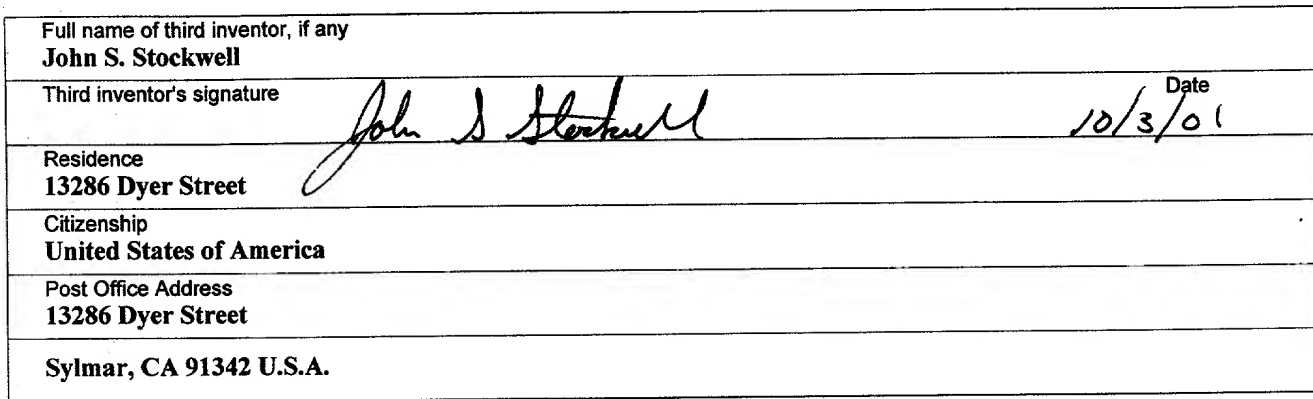 Full name of third inventor, if any
John S. Stockwell
Third inventor's signature John S Stockwell Date 10/3/01
Residence
13286 Dyer Street
Citizenship
United States of America
Post Office Address
13286 Dyer Street
Sylmar, CA 91342 U.S.A.